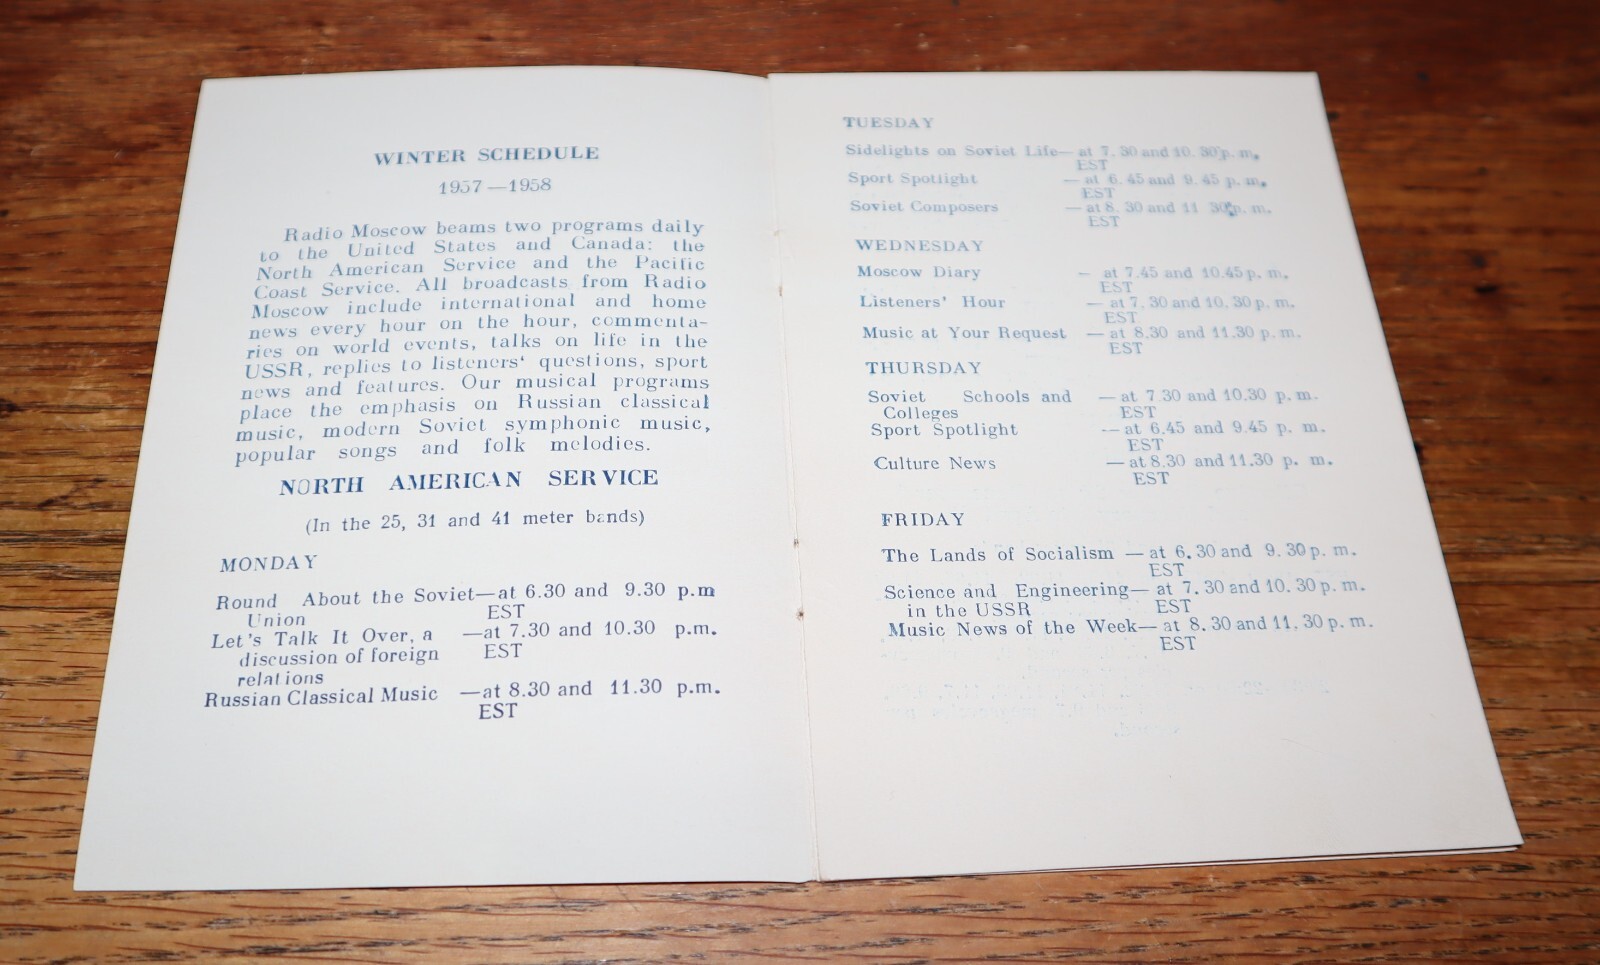 WINTER SCHEDULE
1957—1958
Radio Moscow beams two programs daily
to the United States and Canada: the
North American Service and the Pacific
Coast Service. All broadcasts from Radio
Moscow include international and home
news every hour on the hour, commenta-
ries on world events, talks on life in the
USSR, replies to listeners‘ questions, sport
news and features. Our musical programs
place the emphasis on Russian classical
music, modern Soviet symphonic music,
popular songs and folk melodies.
NORTH AMERICAN SERVICE
(In the 25, 31 and 41 meter bands)
MONDAY
Round About the Soviet—at 6.30 and 9.30 p.m
Union EST
Let's Talk It Over, a —at 7.30 and 10.30 p.m.
discussion of foreign EST
relations
Russian Classical Music —at 8.30 and 11.30 p.m.
EST
TUESDAY
Sidelights on Soviet Life—at 7.30 and 10.30 p.m.
EST
Sport Spotlight —at 6.45 and 9.45 p.m.
EST
Soviet Composers —at 8.30 and 11 30 p.m.
EST
WEDNESDAY
Moscow Diary — at 7.45 and 10.45 p.m.
EST
Listeners' Hour —at 7.30 and 10.30 p.m.
EST
Music at Your Request —at 8.30 and 11.30 p.m.
EST
THURSDAY
Soviet Schools and —at 7.30 and 10.30 p.m.
Colleges EST
Sport Spotlight —at 6.45 and 9.45 p.m.
EST
Culture News —at 8.30 and 11.30 p.m.
EST
FRIDAY
The Lands of Socialism —at 6.30 and 9.30 p.m.
EST
Science and Engineering—at 7.30 and 10.30 p.m.
in the USSR EST
Music News of the Week—at 8.30 and 11.30 p.m.
EST